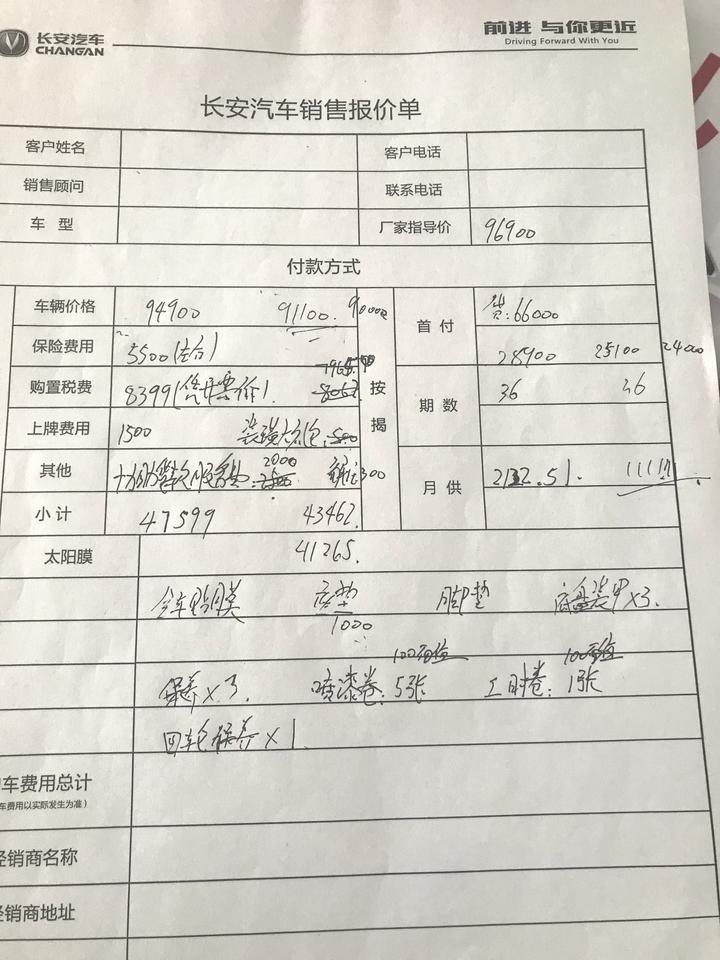 长安汽车 前进 与你更近
CHANGAN Driving Forward With You
长安汽车销售报价单
客户姓名 客户电话
销售顾问 联系电话
车 型 厂家指导价 96900
付款方式
车辆价格 94900 91100. 90000 首 付 贷:66000
保险费用 5500 28900 25100 24000
购置税费 8399 8062 按揭 期 数 36 36
上牌费用 1500 500
其他 2000 300 月 供 51. 11111
小 计 47599 43462.
太阳膜 41265.
全车贴膜 座垫 脚垫 底盘装甲×3.
1000
100面值 100面值
保养×3. 喷漆卷:5张 工时卷:1张
四轮保养×1.
车费用总计
车费用以实际发生为准)
经销商名称
经销商地址